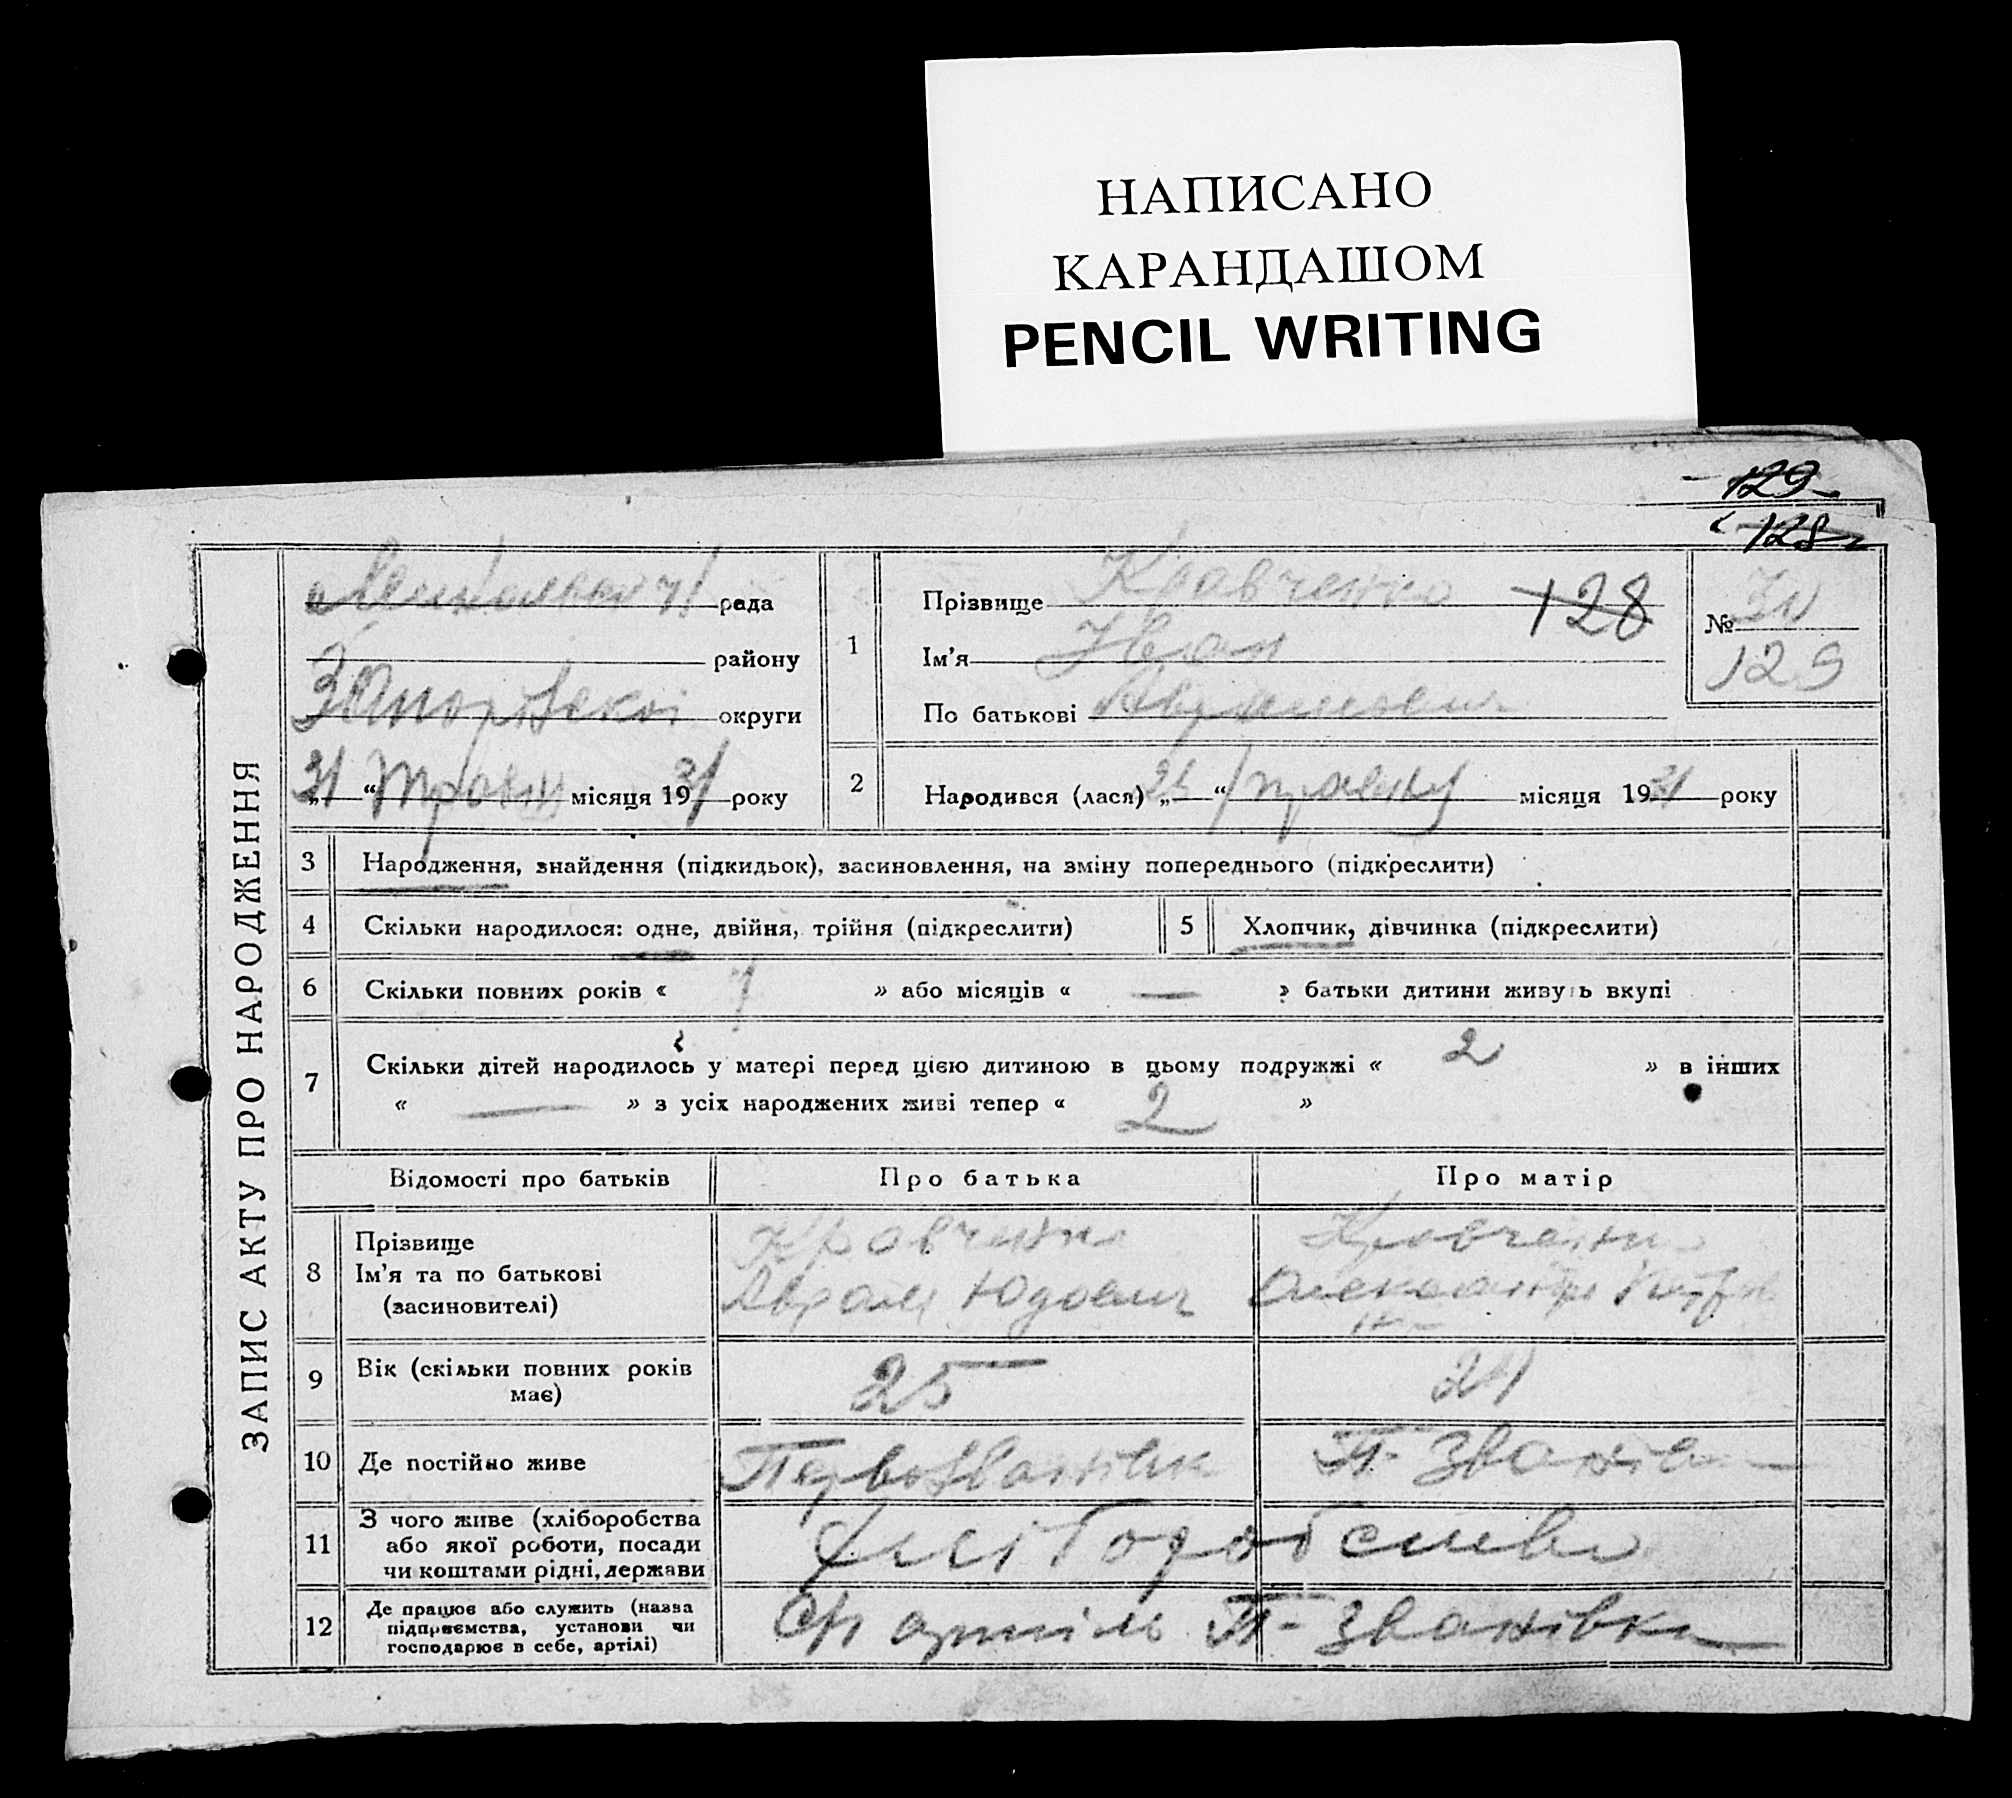 НАПИСАНО
КАРАНДАШОМ
PENCIL WRITING
129
128
ЗАПИС АКТУ ПРО НАРОДЖЕННЯ
рада
району
округи
„31“ травня місяця 1931 року
1 Прізвище Кравченко 128
Ім'я Іван
По батькові
№
129
2 Народився (лася) „25“ травня місяця 1931 року
3 Народження, знайдення (підкидьок), засиновлення, на зміну попереднього (підкреслити)
4 Скільки народилося: одне, двійня, трійня (підкреслити)
5 Хлопчик, дівчинка (підкреслити)
6 Скільки повних років « 7 » або місяців « — » батьки дитини живуть вкупі
7 Скільки дітей народилось у матері перед цією дитиною в цьому подружжі « 2 » в інших
« — » з усіх народжених живі тепер « 2 »
Відомості про батьків Про батька Про матір
8 Прізвище
Ім'я та по батькові
(засиновителі)
Кравченко
Аврам Юдович
Кравченко
Олександра
9 Вік (скільки повних років
має)
25
24
10 Де постійно живе
П-Званів
11 З чого живе (хліборобства
або якої роботи, посади
чи коштами рідні, держави
12 Де працює або служить (назва
підприємства, установи чи
господарює в себе, артілі)
артіль П-Званівка